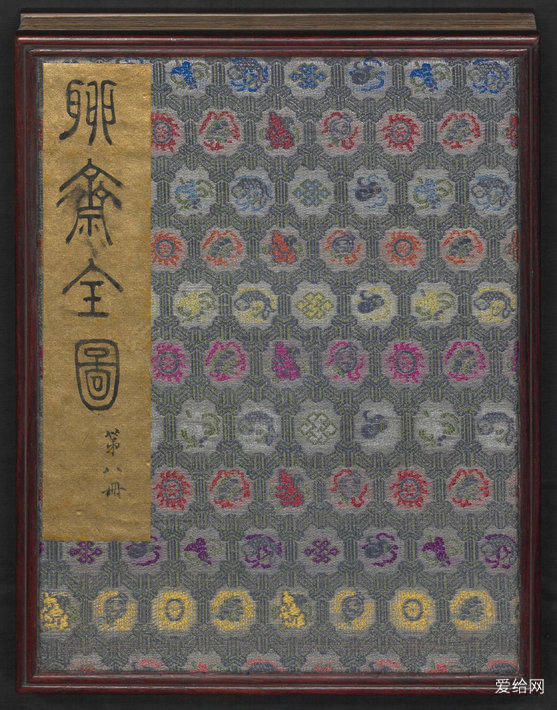 聊齋全圖
第八冊
爱给网